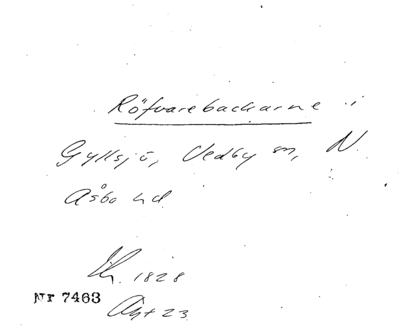 Röfvarebackarne i
Gyllsjö, Vedby sn, N.
Åsbo hd
1828
Nr 7463
Akt 23